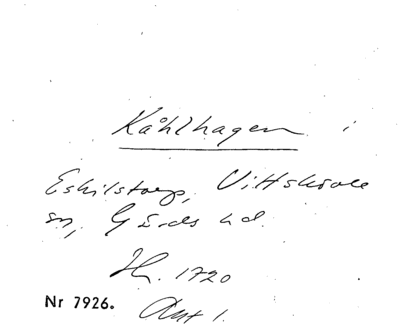 Kåhlhagen i
Eskilstorp, Vittskövle
sn, Gärds hd.
H. 1720
Nr 7926. Akt 1.